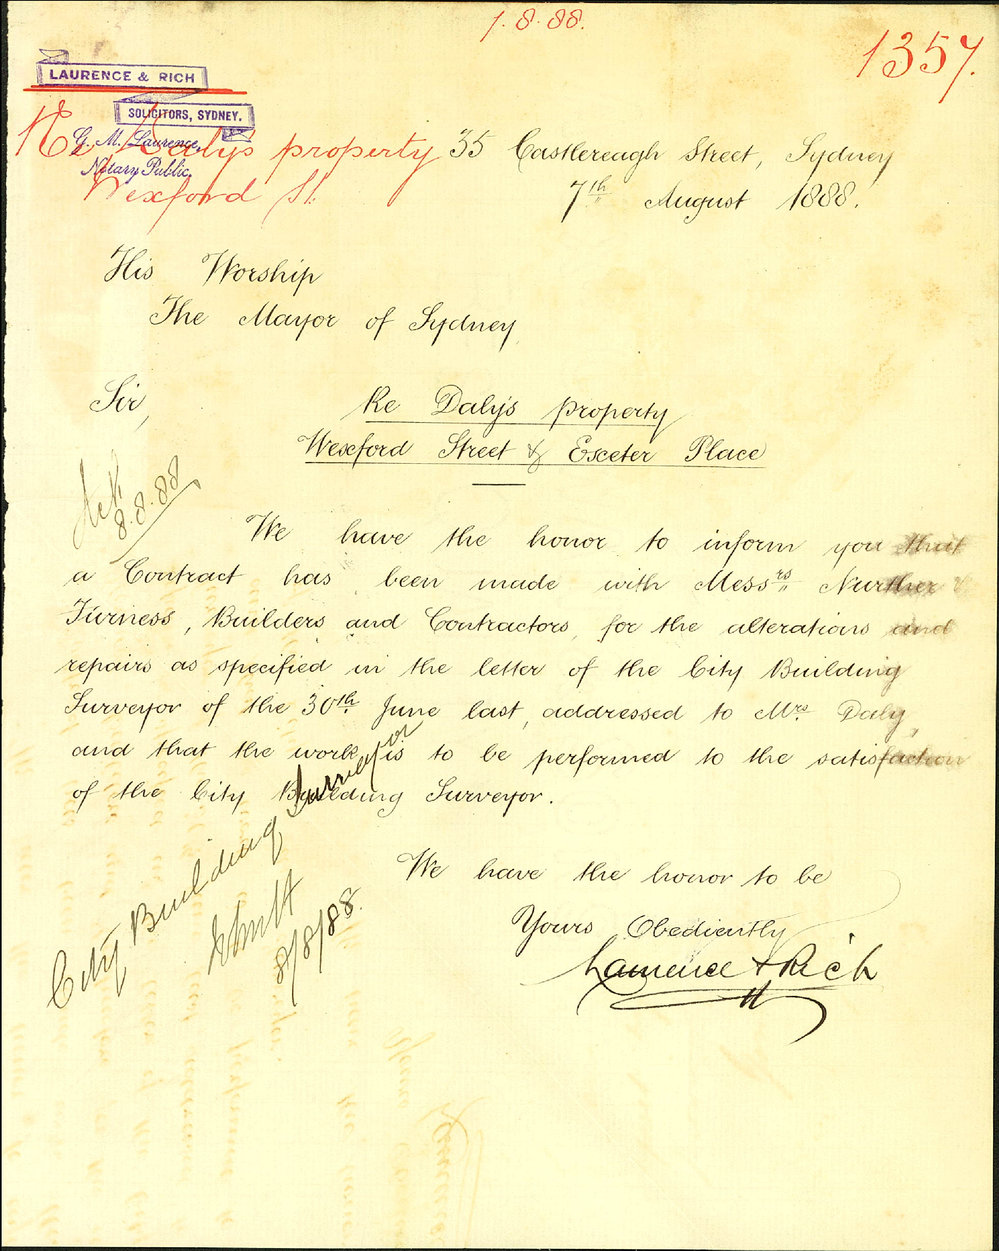 1.8.88.
1357.
LAURENCE & RICH
SOLICITORS, SYDNEY.
G. M. Laurence,
Notary Public.
Re Daly's property
Wexford St.
35 Castlereagh Street, Sydney
7th August 1888.
His Worship
The Mayor of Sydney
Sir,
Re Daly's property
Wexford Street & Exeter Place
Ack
8.8.88
We have the honor to inform you that
a Contract has been made with Messrs Nurther &
Furness, Builders and Contractors, for the alterations and
repairs as specified in the letter of the City Building
Surveyor of the 30th June last, addressed to Mrs Daly,
and that the work is to be performed to the satisfaction
of the City Building Surveyor.
City Building Surveyor
8/8/88.
We have the honor to be
Yours Obediently
Laurence & Rich